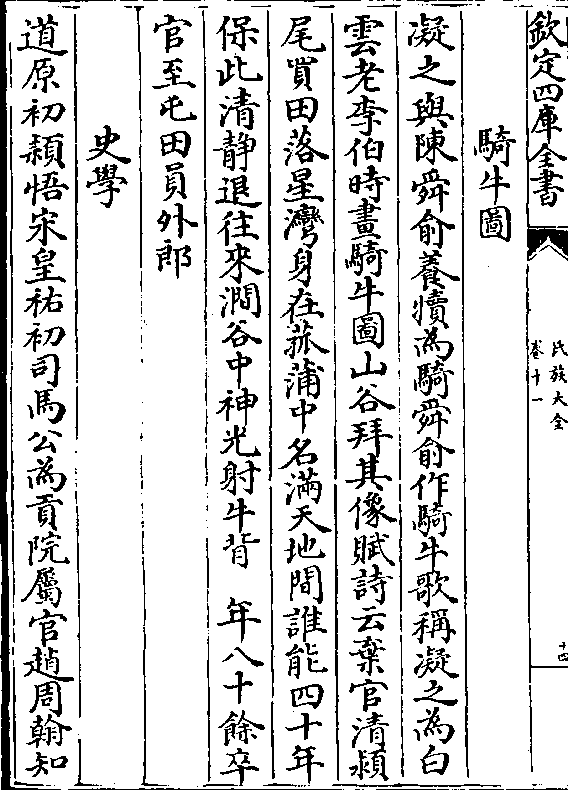 欽定四庫全書
氏族大全
卷十一
十四
騎牛圖
凝之與陳舜俞養犢為騎舜俞作騎牛歌稱凝之為白
雲老李伯時畫騎牛圖山谷拜其像賦詩云棄官清潁
尾買田落星灣身在菰蒲中名滿天地間誰能四十年
保此清静退往來澗谷中神光射牛背 年八十餘卒
官至屯田員外郎
史學
道原初穎悟宋皇祐初司馬公為貢院屬官趙周翰知